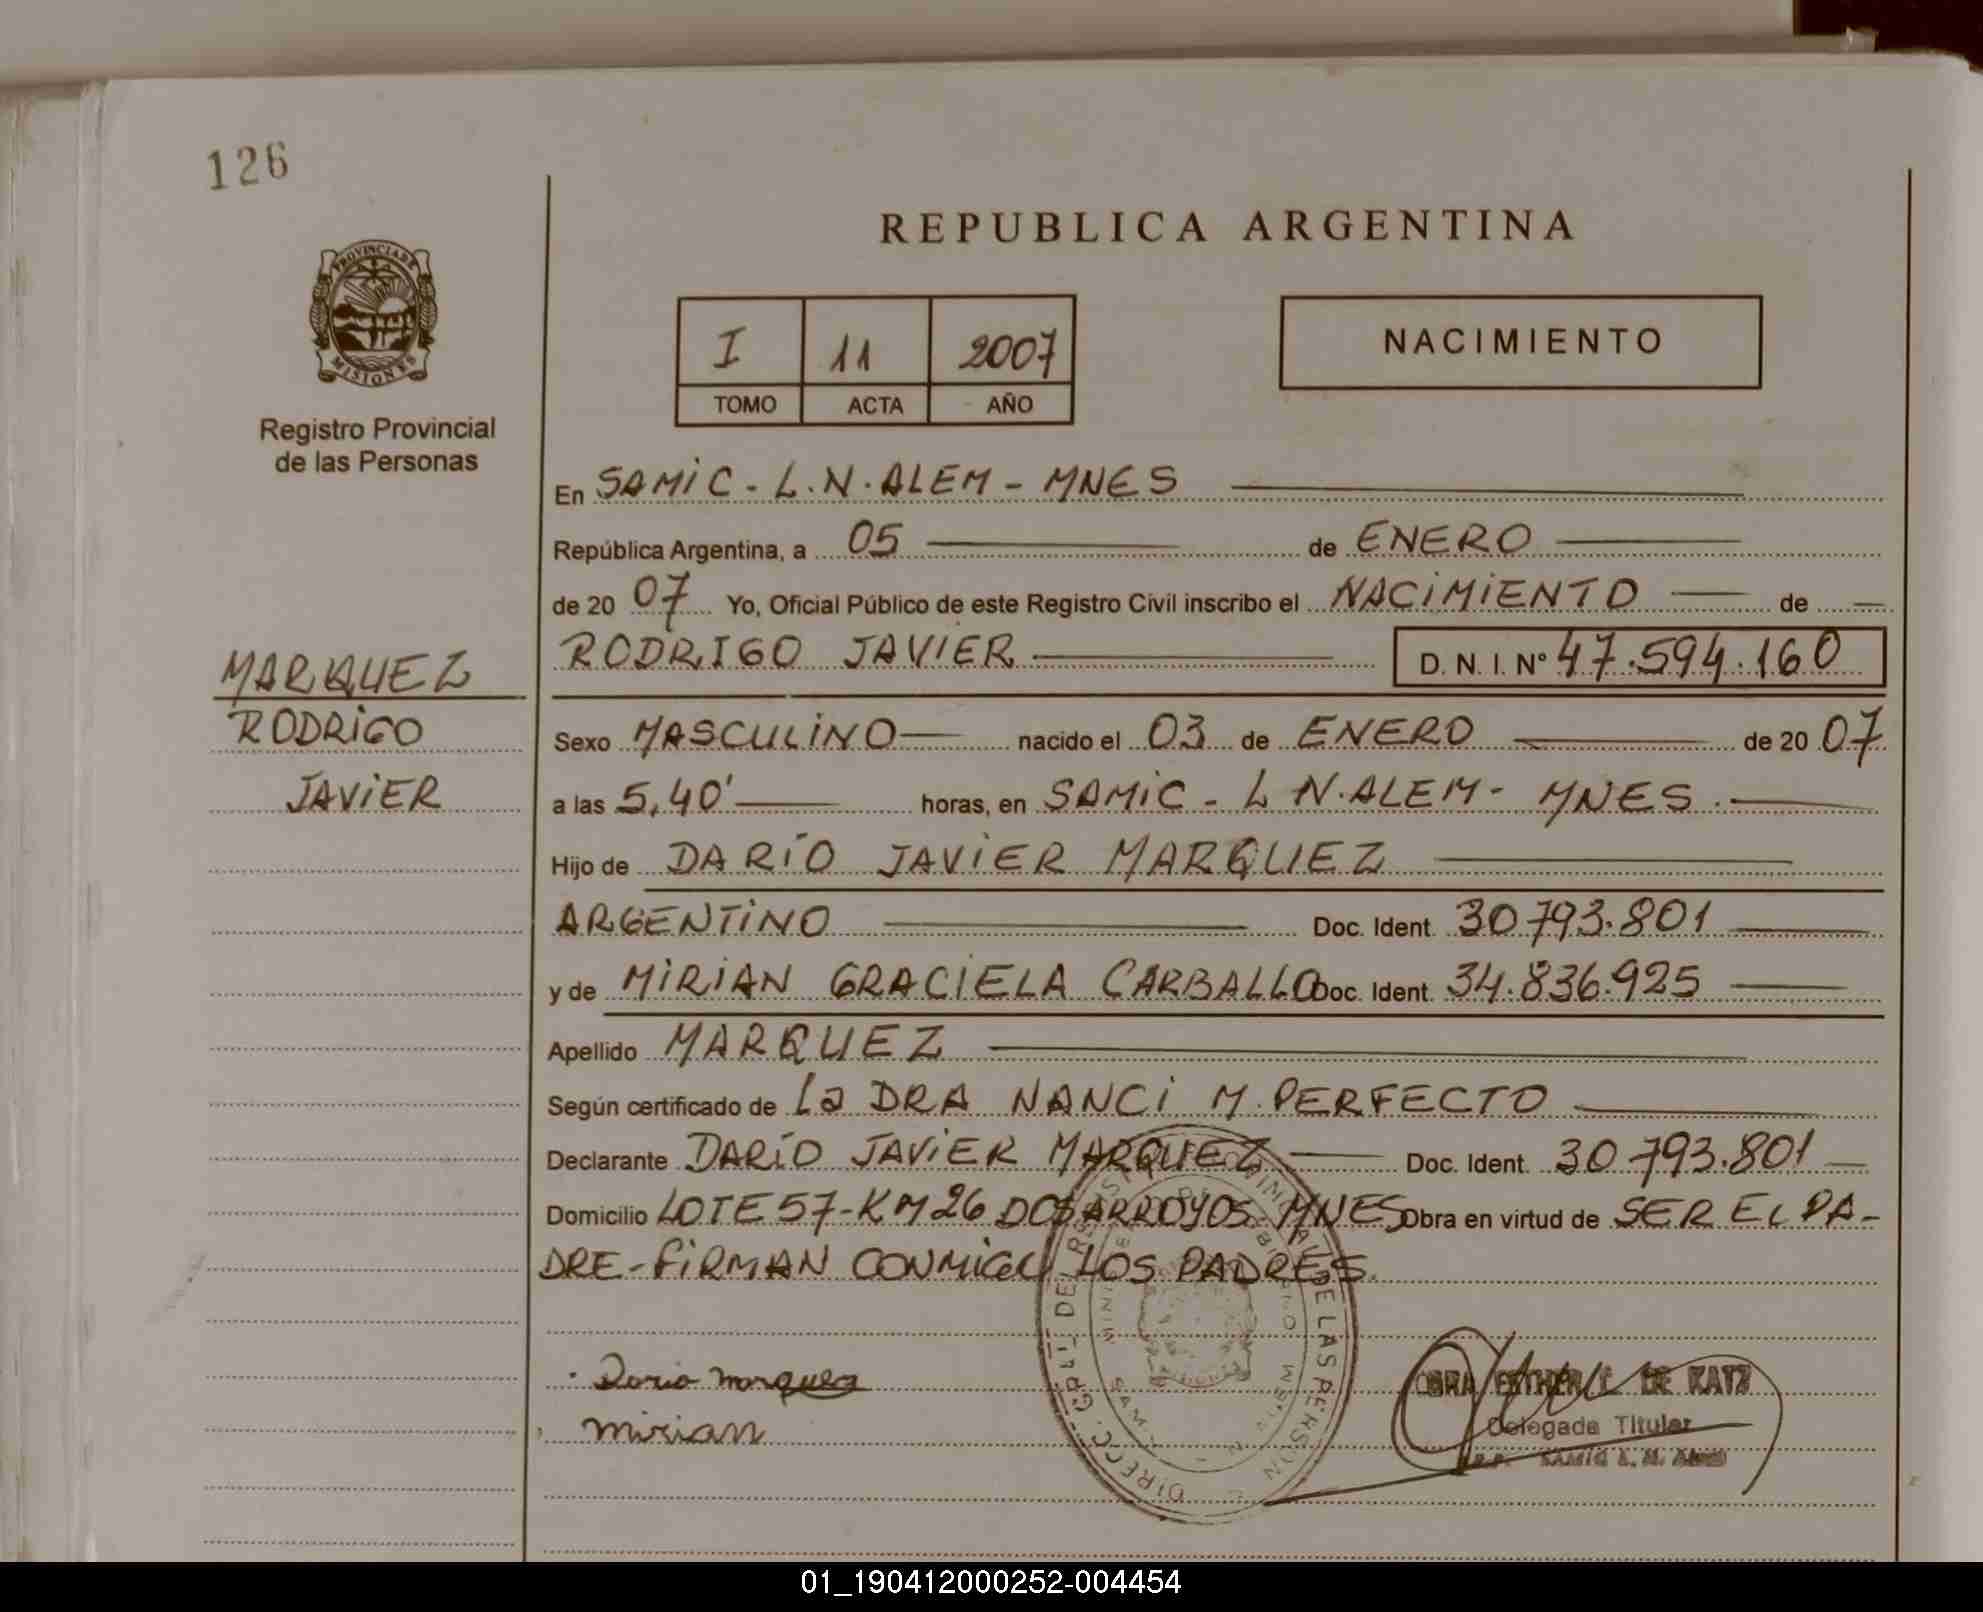 126
REPUBLICA ARGENTINA
PROVINCIA DE
MISIONES
Registro Provincial
de las Personas
I 11 2007
TOMO ACTA AÑO
NACIMIENTO
En SAMIC - L.N. ALEM - MNES
República Argentina, a 05 de ENERO
de 20 07 Yo, Oficial Público de este Registro Civil inscribo el NACIMIENTO de
RODRIGO JAVIER D. N. I. Nº 47.594.160
MARQUEZ
RODRIGO
JAVIER
Sexo MASCULINO nacido el 03 de ENERO de 20 07
a las 5,40' horas, en SAMIC - L N. ALEM - MNES.
Hijo de DARÍO JAVIER MARQUEZ
ARGENTINO Doc. Ident. 30.793.801
y de MIRIAN GRACIELA CARBALLO Doc. Ident. 34.836.925
Apellido MARQUEZ
Según certificado de La DRA NANCI M. PERFECTO
Declarante DARÍO JAVIER MARQUEZ Doc. Ident. 30.793.801
Domicilio LOTE 57 - KM 26 DOS ARROYOS. MNES Obra en virtud de SER EL PA-
DRE - FIRMAN CONMIGO LOS PADRES.
Dario Marquez
Mirian
ESTHER DE KATZ
Delegada Titular
SAMIC L. N. Alem
01_190412000252-004454